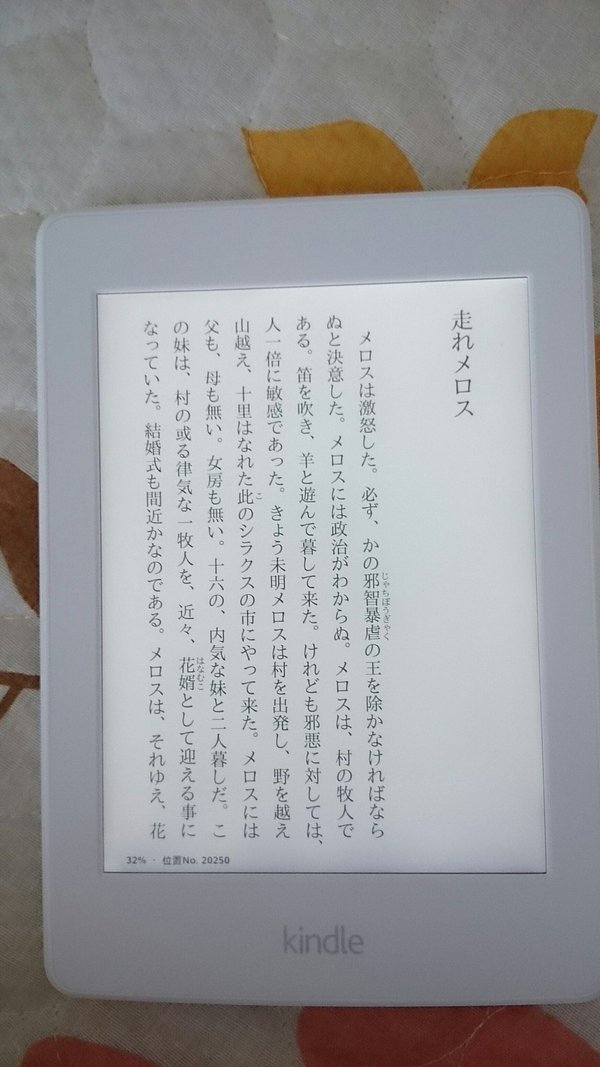 走れメロス
メロスは激怒した。必ず、かの邪智暴虐の王を除かなければなら
じゃちぼうぎゃく
ぬと決意した。メロスには政治がわからぬ。メロスは、村の牧人で
ある。笛を吹き、羊と遊んで暮して来た。けれども邪悪に対しては、
人一倍に敏感であった。きょう未明メロスは村を出発し、野を越え
山越え、十里はなれた此のシラクスの市にやって来た。メロスには
こ
父も、母も無い。女房も無い。十六の、内気な妹と二人暮しだ。こ
の妹は、村の或る律気な一牧人を、近々、花婿として迎える事に
はなむこ
なっていた。結婚式も間近かなのである。メロスは、それゆえ、花
32% · 位置No. 20250
kindle